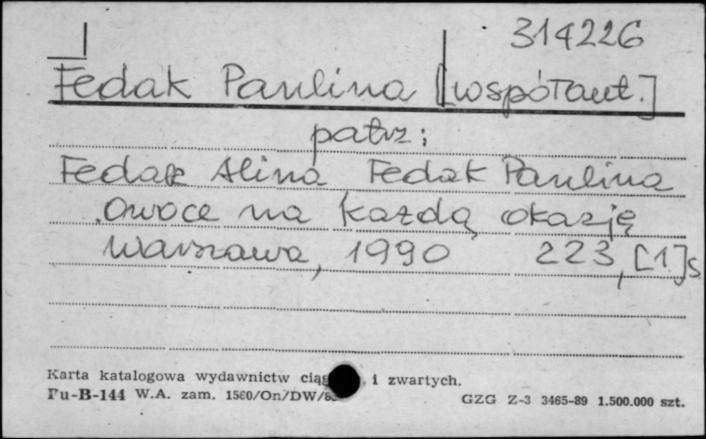 314226
Fedak Paulina [współaut.]
patrz:
Fedak Alina Fedak Paulina
Owoce na każdą okazję
Warszawa, 1990 223, [1]s
Karta katalogowa wydawnictw i zwartych.
Pu-B-144 W.A. zam. 1560/On/DW/
GZG Z-3 3465-89 1.500.000 szt.